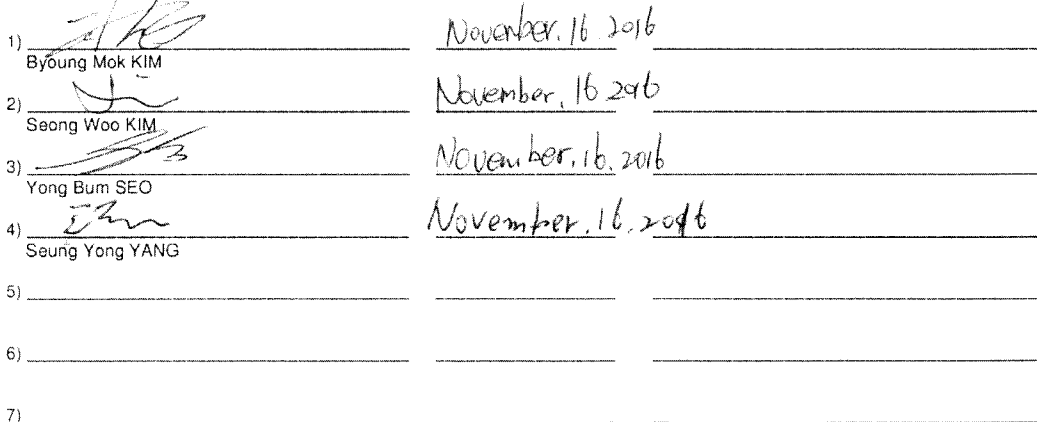 1) November. 16. 2016
Byoung Mok KIM
2) November. 16 2016
Seong Woo KIM
3) November. 16. 2016
Yong Bum SEO
4) November. 16. 2016
Seung Yong YANG
5)
6)
7)